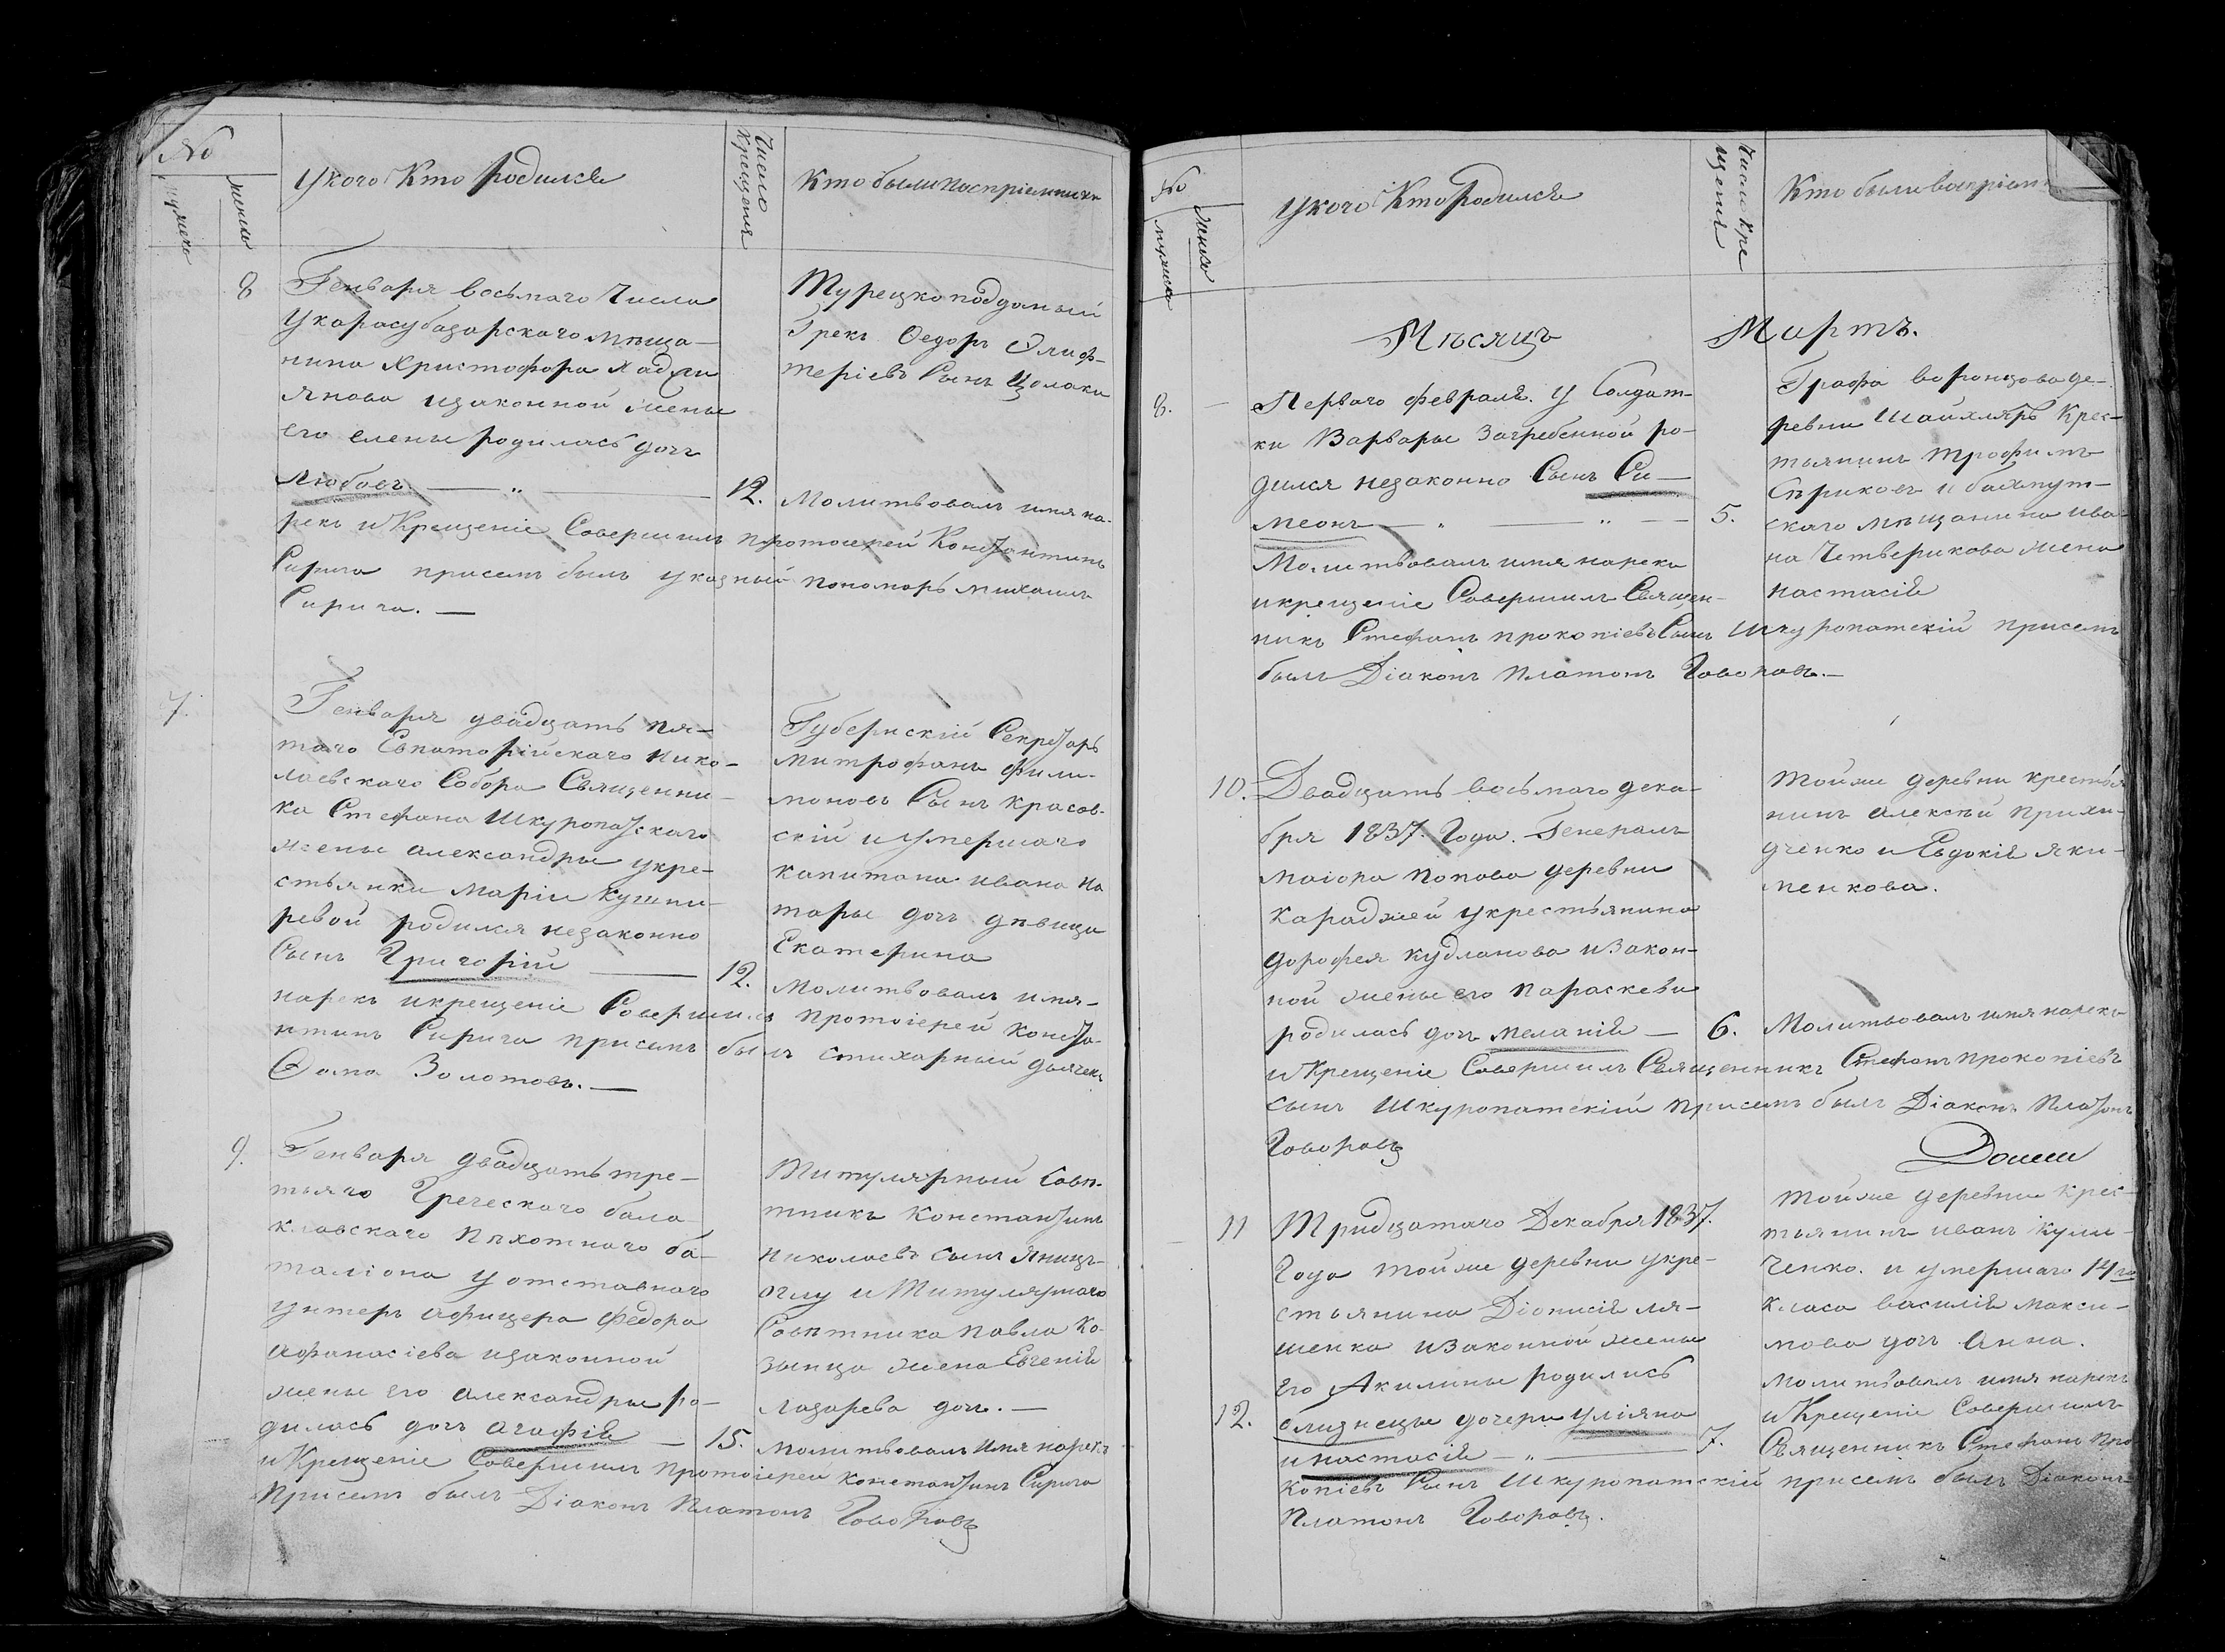 №
мужеска
женска
У кого Кто родился
Число Крещения
Кто были воспріемники
8
Генваря восьмаго числа
У карасубазарскаго мѣща-
нина Христофора Хаджи
янова изаконной жены
его елены родилась дочь
Любовь — „ — 12.
Турецкоподданый
Грекъ Ѳедоръ Элиф-
теріевъ Сынъ
Молитвовалъ имя на-
рекъ и Крещеніе Совершилъ протоіерей Константинъ
Сирига присемъ былъ указный пономарь михаилъ
Сирига. —
7.
Генваря двадцать пя-
таго Евпаторійскаго Нико-
лаевскаго Собора Священни-
ка Стефана Шкуропатскаго
жены александры укре-
стьянки Маріи Кушни-
ревой родился незаконно
Сынъ Григорій — 12.
Губернскій Секретарь
митрофанъ Фили-
моновъ Сынъ Красов-
скій и умершаго
капитана ивана На
тары дочь дѣвица
Екатерина
Молитвовалъ имя-
нарекъ икрещеніе Совершилъ протоіерей Конста-
нтинъ Сирига присемъ былъ стихарный дьячекъ
Ѳома Золотовъ. —
9.
Генваря двадцать тре-
тьяго Греческаго бала-
клавскаго пѣхотнаго ба-
таліона у отставнаго
унтеръ афицера Федора
Афанасіева изаконной
жены его александры ро-
дилась дочь агафія — 15.
Титулярный Совѣ-
тникъ Константинъ
николаевъ сынъ Яницъ-
оглу и Титулярнаго
Совѣтника павла Ко-
зынца жена Евгенія
лазарева дочь. —
Молитвовалъ имя нарекъ
и Крещеніе Совершилъ протоіерей Константинъ Сирига
присемъ былъ Діаконъ Платонъ Говоровъ
№
мужеска
женска
У кого Кто Родился
Число Кре
щенія
Кто были воспріем
Мѣсяцъ Мартъ.
8. —
Перваго февраля. у Солдат-
ки Варвары Загребенной ро-
дился незаконно Сынъ Си-
меонъ — „ — „ — 5.
Молитвовалъ имя нарекъ
икрещеніе Совершилъ Священ-
Графа воронцова де-
ревни Шайхларъ Крес-
тьянинъ трофимъ
Сѣриковъ и бахмут-
скаго мѣщанина ива-
на Четверикова жена
настасія
никъ Стефанъ прокопіевъ Сынъ Шкуропатскій присемъ
былъ Діаконъ платонъ Говоровъ. —
10.
Двадцать восьмаго дека-
бря 1837. Года. Генералъ
маіора Попова деревни
Караджей укрестьянина
дорофея кудланова изакон-
ной жены его параскевы
родилась дочь меланія — 6.
Тойже деревни крестья
нинъ алексѣй прихи-
дченко и Евдокія яки-
менкова.
Молитвовалъ имя нарекъ
и Крещеніе Совершилъ Священникъ Стефанъ прокопіевъ
сынъ Шкуропатскій присемъ былъ Діаконъ платонъ
Говоровъ
11
Тридцатаго Декабря 1837.
Года тойже деревни укре-
стьянина Діонисія ля-
шенка изаконной жены
Его Акилины родились
12.
близнецы дочери уліяна
инастасія — „ — 7.
Тойже деревни крес-
тьянинъ иванъ Кули-
ченко. и умершаго 14го
Класа василія макси-
мова дочь анна.
Молитвовалъ имя нарекъ
и Крещеніе Совершилъ
Священникъ Стефанъ про
копіевъ Сынъ Шкуропатскій присемъ былъ Діаконъ
Платонъ Говоровъ.